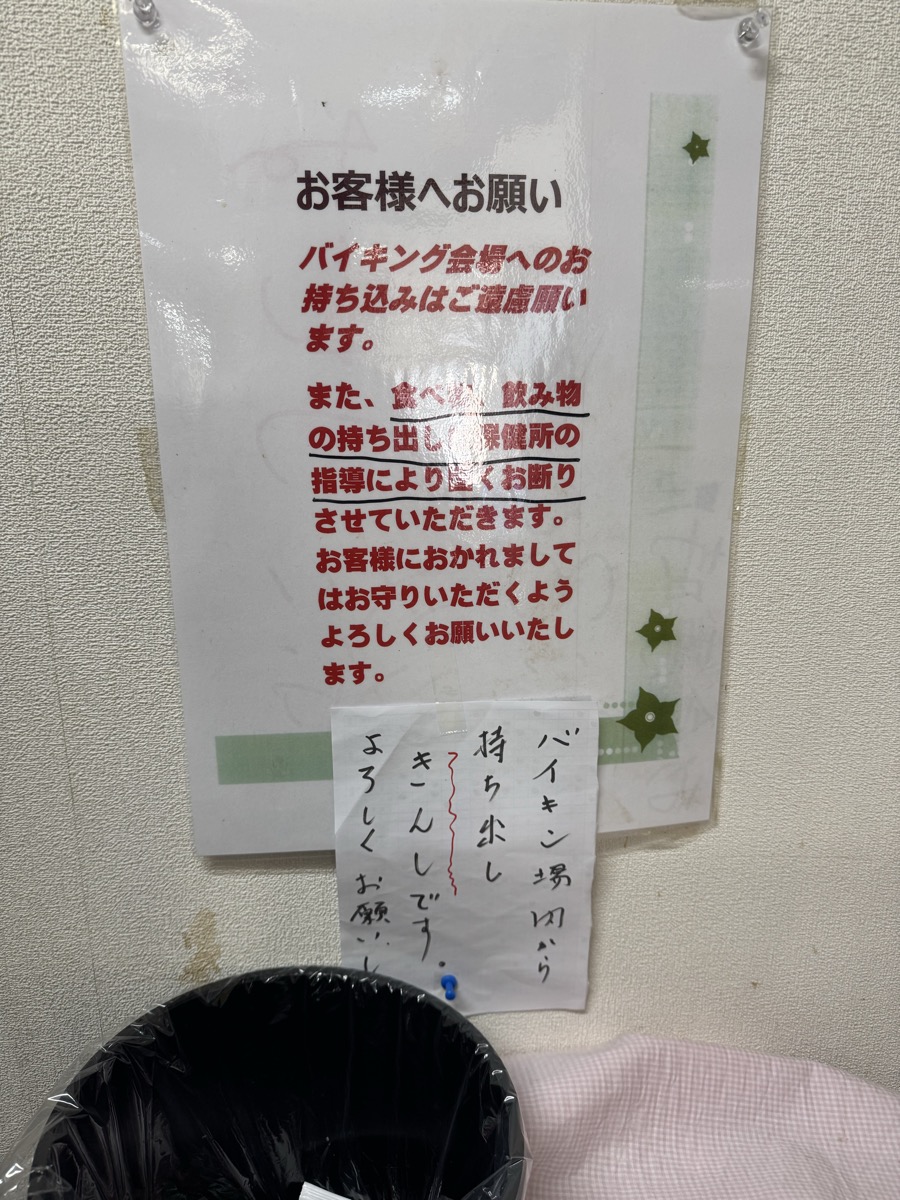 お客様へお願い
バイキング会場へのお
持ち込みはご遠慮願い
ます。
また、食べ 飲み物
の持ち出し 保健所の
指導により く お断り
させていただきます。
お客様におかれまして
はお守りいただくよう
よろしくお願いいたし
ます。
バイキン場内から
持ち出し
きんしです。
よろしくお願いし